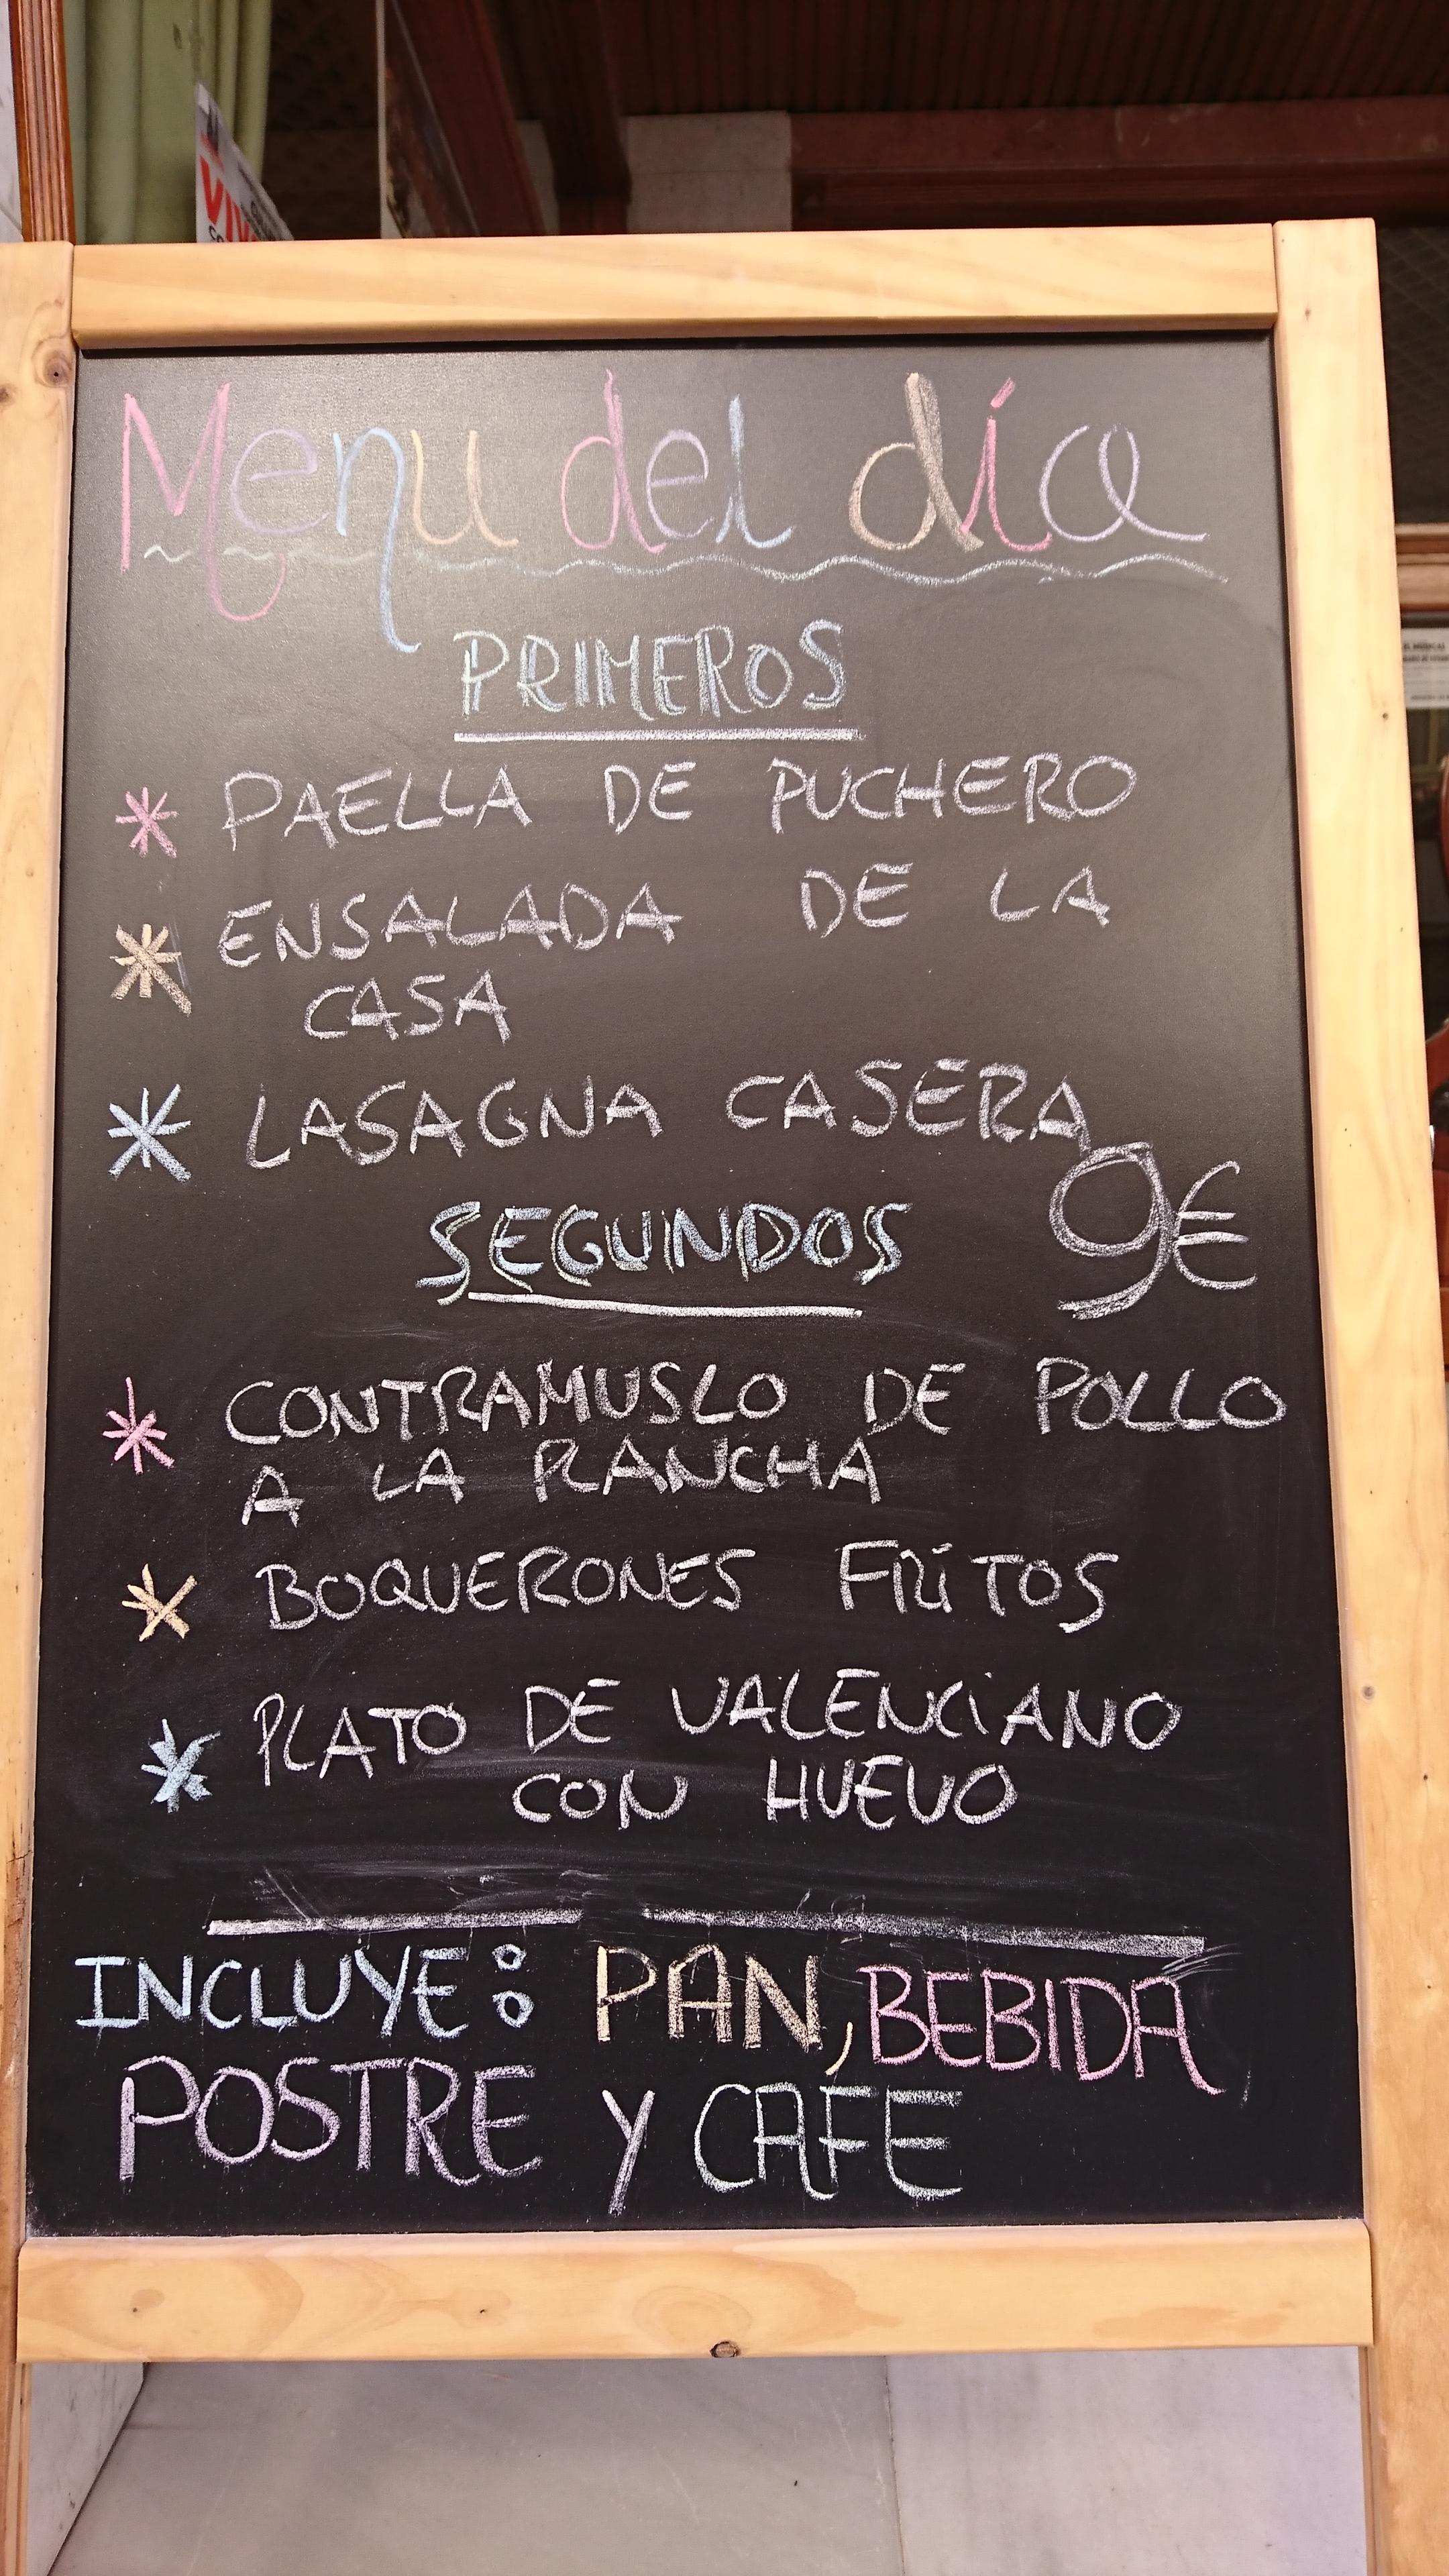 Menu del día
PRIMEROS
* PAELLA DE PUCHERO
* ENSALADA DE LA
CASA
* LASAGNA CASERA
9€
SEGUNDOS
* CONTRAMUSLO DE POLLO
A LA PLANCHA
* BOQUERONES FRiTOS
* PLATO DE VALENCiANO
CON HUEVO
INCLUYE: PAN, BEBIDA,
POSTRE Y CAFE